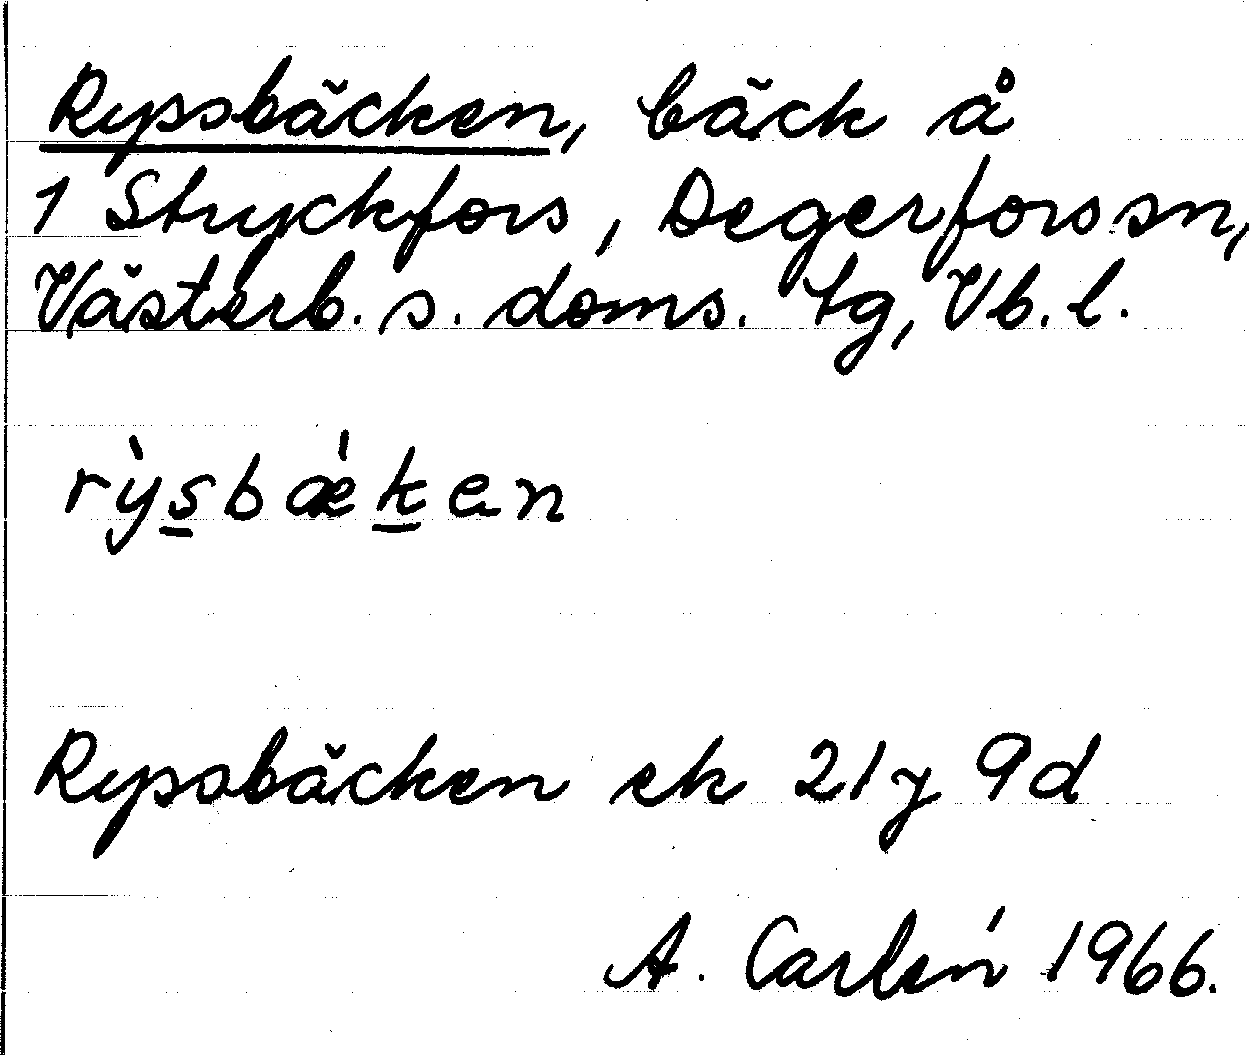 Ryssbäcken, bäck å
1 Stryckfors, Degerfors sn,
Västerb. s. doms. tg, Vb. l.
rỳsbǽkan
Ryssbäcken ek 21y 9d
A. Carlén 1966.